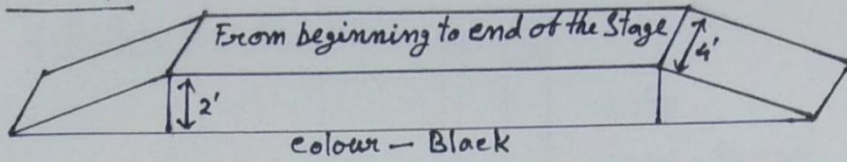 From beginning to end of the Stage
4'
2'
Colour — Black